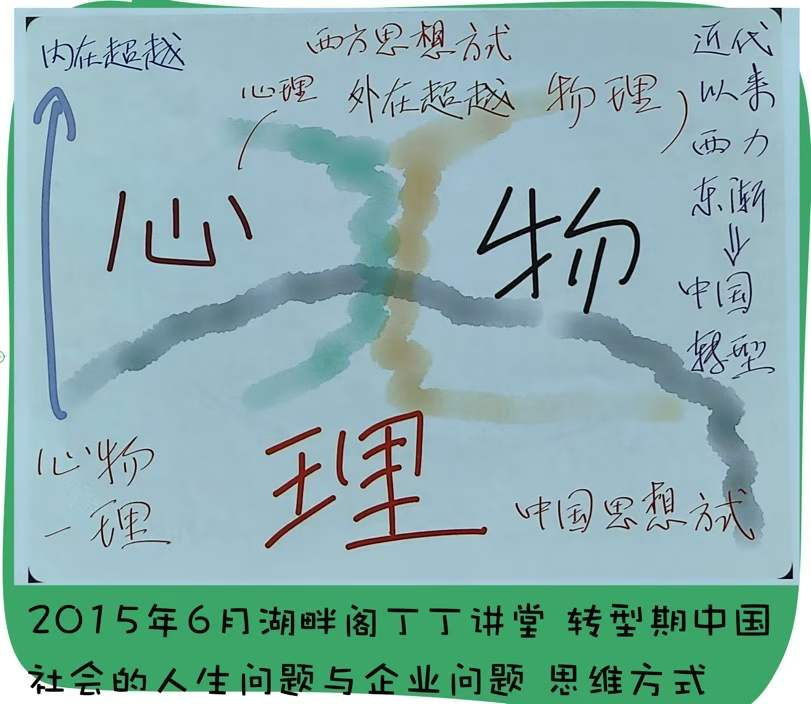 内在超越
西方思想方式
心理 外在超越 物理
近代
以来
西力
东渐
⇓
中国
转型
心 物
理
心物
一理
中国思想方式
2015年6月湖畔阁丁丁讲堂 转型期中国
社会的人生问题与企业问题 思维方式